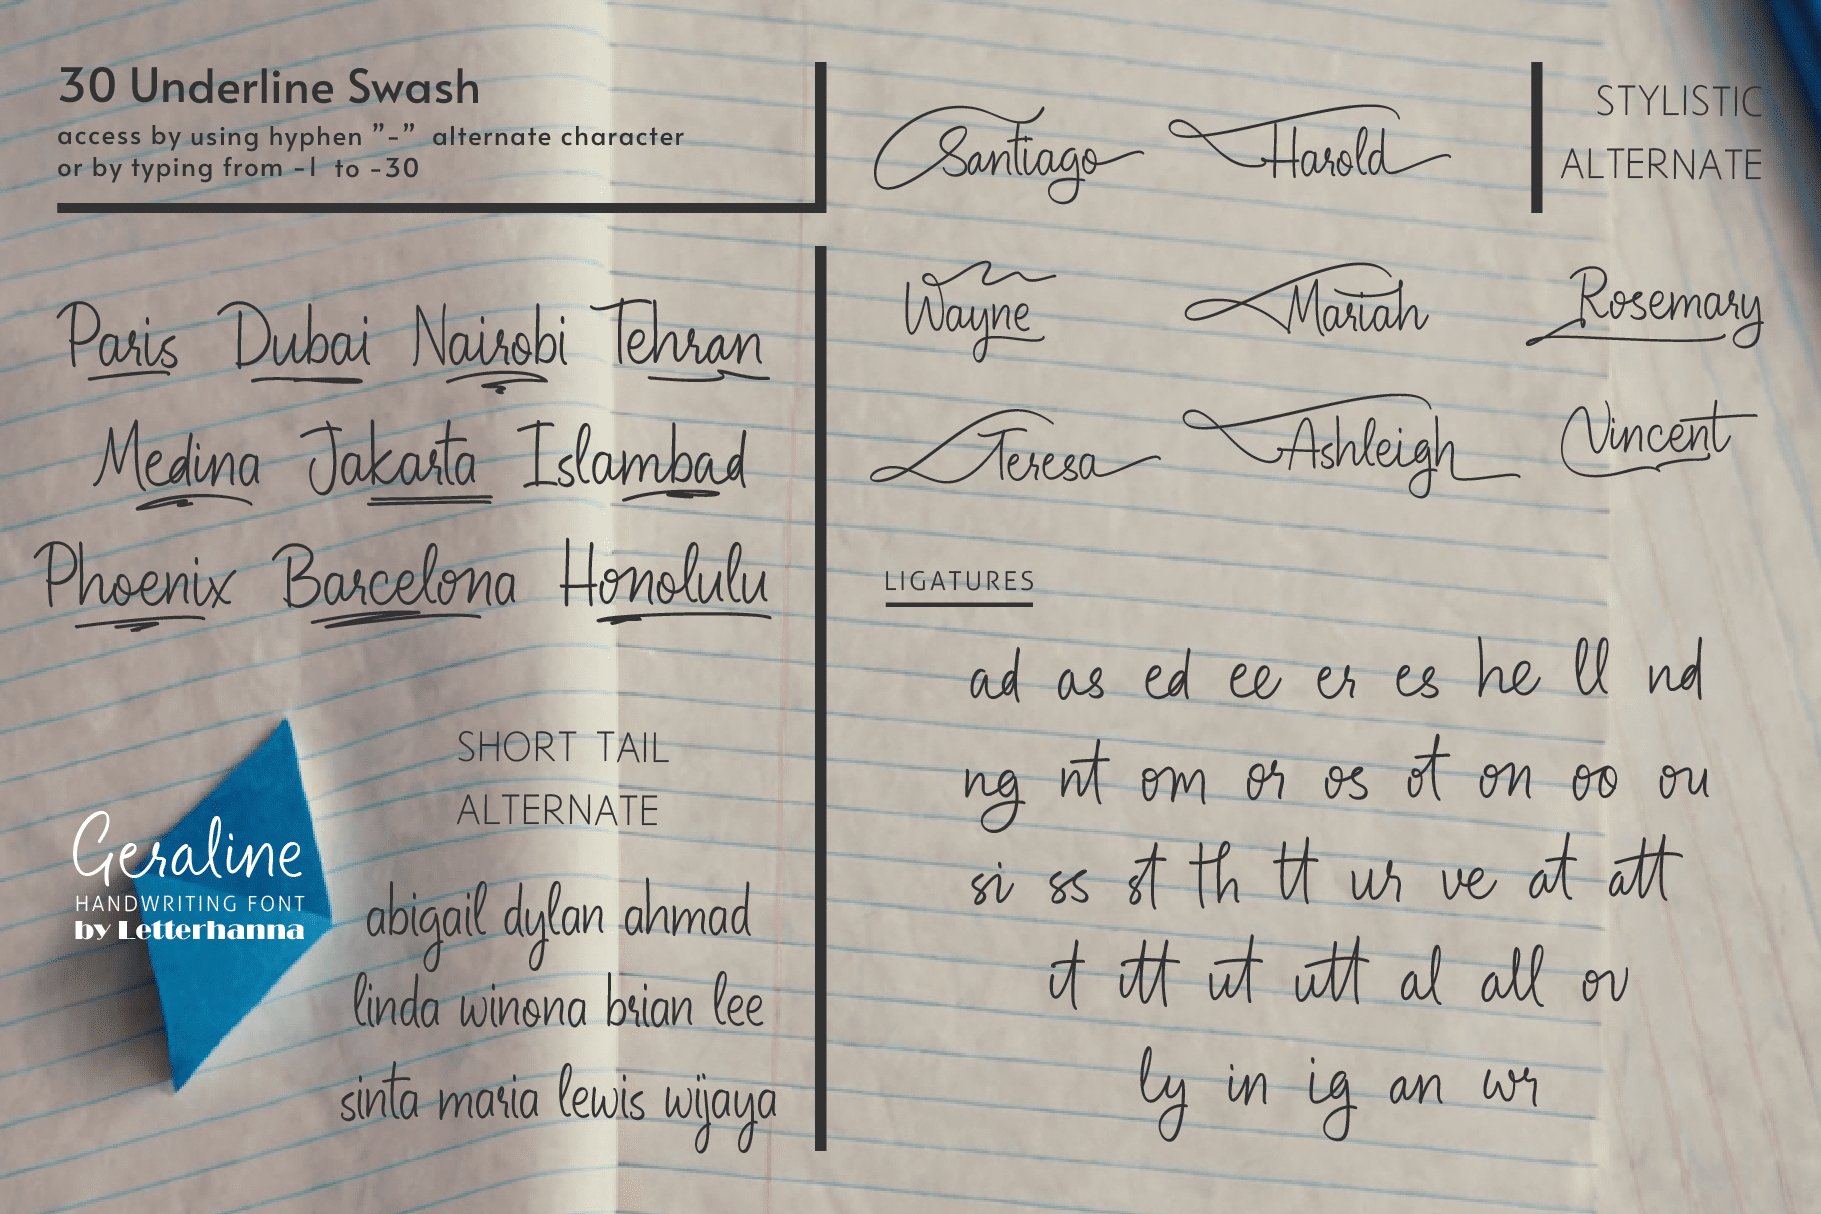 30 Underline Swash
access by using hyphen "-" alternate character
or by typing from -1 to -30
Paris Dubai Nairobi Tehran
Medina Jakarta Islambad
Phoenix Barcelona Honolulu
Geraline
HANDWRITING FONT
by Letterhanna
SHORT TAIL
ALTERNATE
abigail dylan ahmad
linda winona brian lee
sinta maria lewis wijaya
Santiago Harold
STYLISTIC
ALTERNATE
Wayne Mariah Rosemary
Teresa Ashleigh Vincent
LIGATURES
ad as ed ee er es he ll nd
ng nt om or os ot on oo ou
si ss st th tt ur ve at att
it itt ut utt al all ov
ly in ig an wr